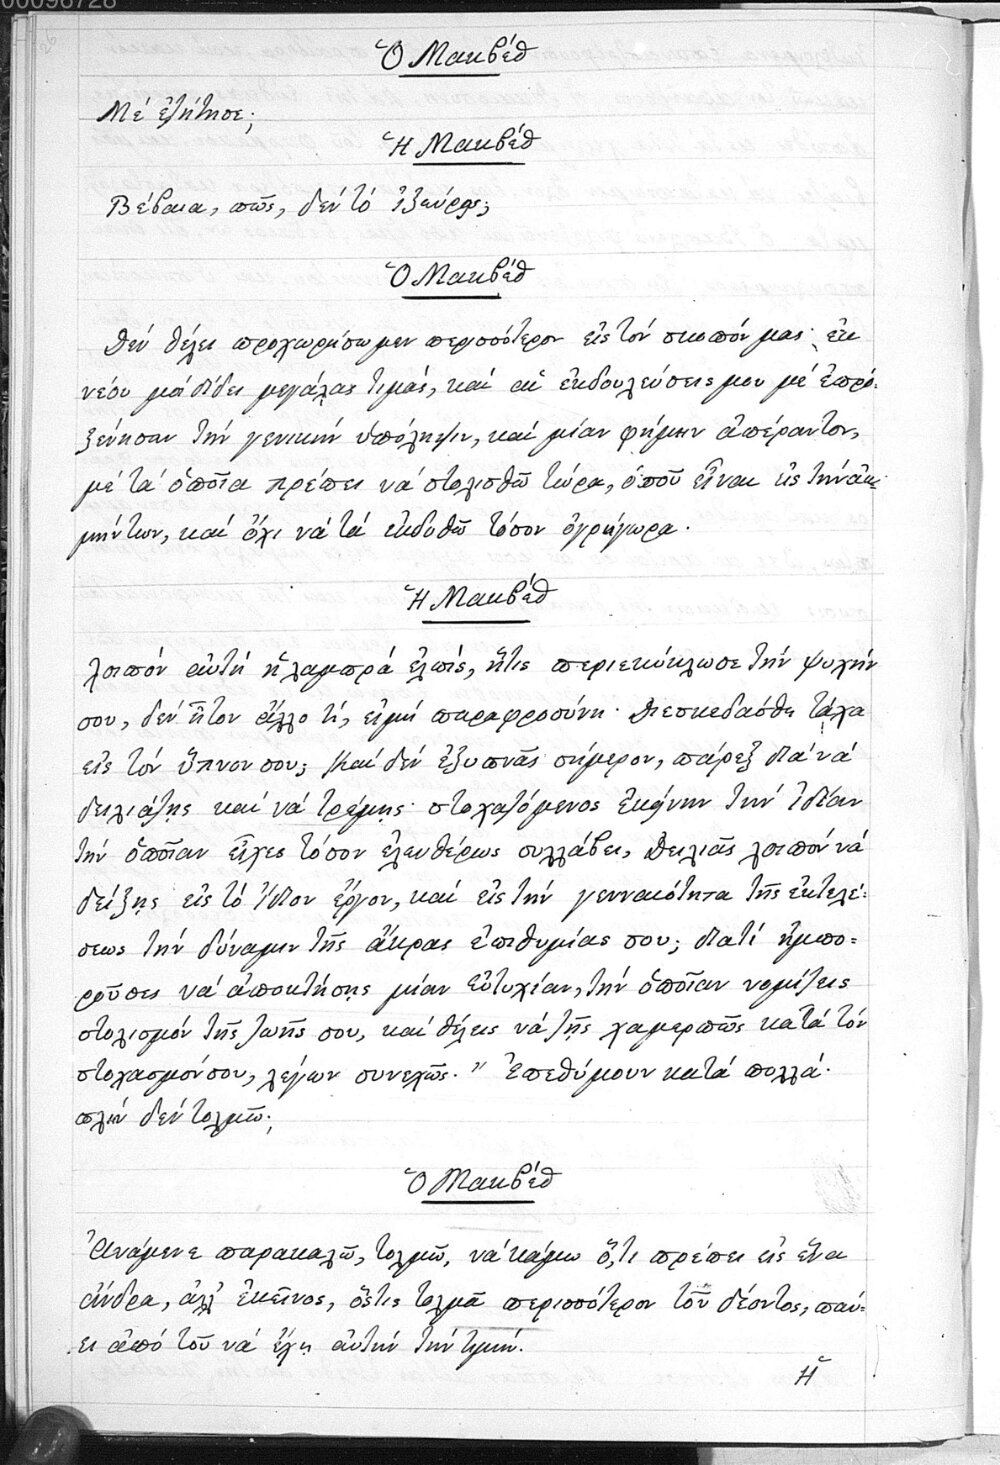 00096728
Ὁ Μακβέθ
Μέ ἐζήτησε;
Ἡ Μακβέθ
Βέβαια, πῶς, δέν τό ἰξεύρεις;
Ὁ Μακβέθ
Δέν θέλει προχωρήσωμεν περισσότερον εἰς τόν σκοπόν μας· ἐκ
νέου μοί δίδει μεγάλας τιμάς, καί αἱ ἐκδουλεύσεις μου μέ ἐπρό-
ξενησαν τήν γενικήν ὑπόληψιν, καί μίαν φήμην ἀπέραντον,
μέ τά ὁποῖα πρέπει νά στολισθῶ τώρα, ὁποῦ εἶναι εἰς τήν ἀκ-
μήν των, καί ὄχι νά τά ἐκδυθῶ τόσον ὀγρήγωρα.
Ἡ Μακβέθ
Λοιπόν αὐτή ἡ λαμπρά ἐλπίς, ἥτις περιεκύκλωσε τήν ψυχήν
σου, δέν ἦτον ἄλλο τί, εἰμή παραφροσύνη· Διεσκεδάσθη τάχα
εἰς τόν ὕπνον σου; Καί δέν ἐξυπνᾶς σήμερον, πάρεξ διά νά
δειλιάσῃς καί νά τρέμῃς στοχαζόμενος ἐκείνην τήν ἰδέαν
τήν ὁποῖαν εἶχες τόσον ἐλευθέρως συλλάβει, Δειλιᾶς λοιπόν νά
δείξῃς εἰς τό ἴδιον ἔργον, καί εἰς τήν γενναιότητα τῆς ἐκτελέ-
σεως τήν δύναμιν τῆς ἄκρας ἐπιθυμίας σου; Διατί ἠμπο-
ροῦσες νά ἀποκτήσῃς μίαν εὐτυχίαν, τήν ὁποῖαν νομίζεις
στολισμόν τῆς ζωῆς σου, καί θέλεις νά ζῇς χαμερπῶς κατά τόν
στοχασμόν σου, λέγων συνεχῶς. " Ἐπεθύμουν κατά πολλά·
πλήν δέν τολμῶ;
Ὁ Μακβέθ
Ἀνάμενε παρακαλῶ, τολμῶ, νά κάμω ὅ,τι πρέπει εἰς ἕνα
ἄνδρα, ἀλλ' ἐκεῖνος, ὅστις τολμᾷ περισσότερον τοῦ δέοντος, παύ-
ει ἀπό τοῦ νά ἔχῃ αὐτήν τήν τιμήν.
Ἡ